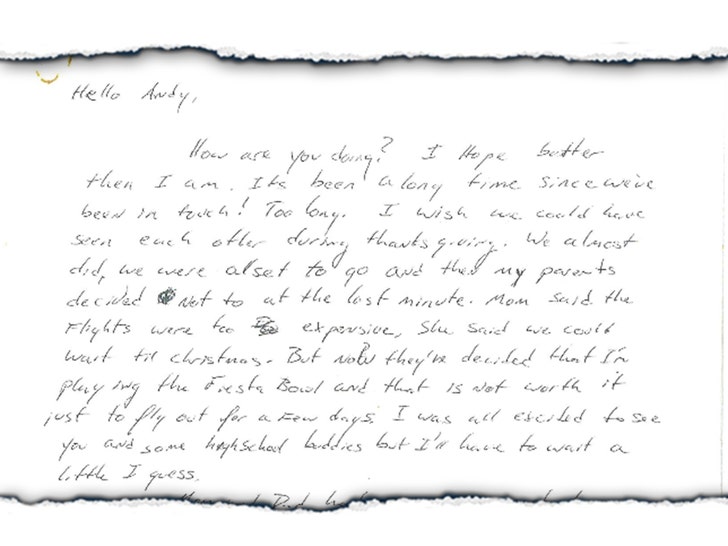 Hello Andy,
How are you doing? I Hope better
then I am. Its been along time since we've
been in touch! Too long. I wish we could have
seen each other during thanksgiving. We almost
did, we were all set to go and then my parents
decided Not to at the last minute. Mom said the
Flights were too expensive, She said we could
wait til christmas. But NoW they've decided that I'm
playing the Fiesta Bowl and that is Not worth it
just to fly out for a Few days. I was all excited to see
you and some highschool buddies but I'll have to wait a
little I guess.